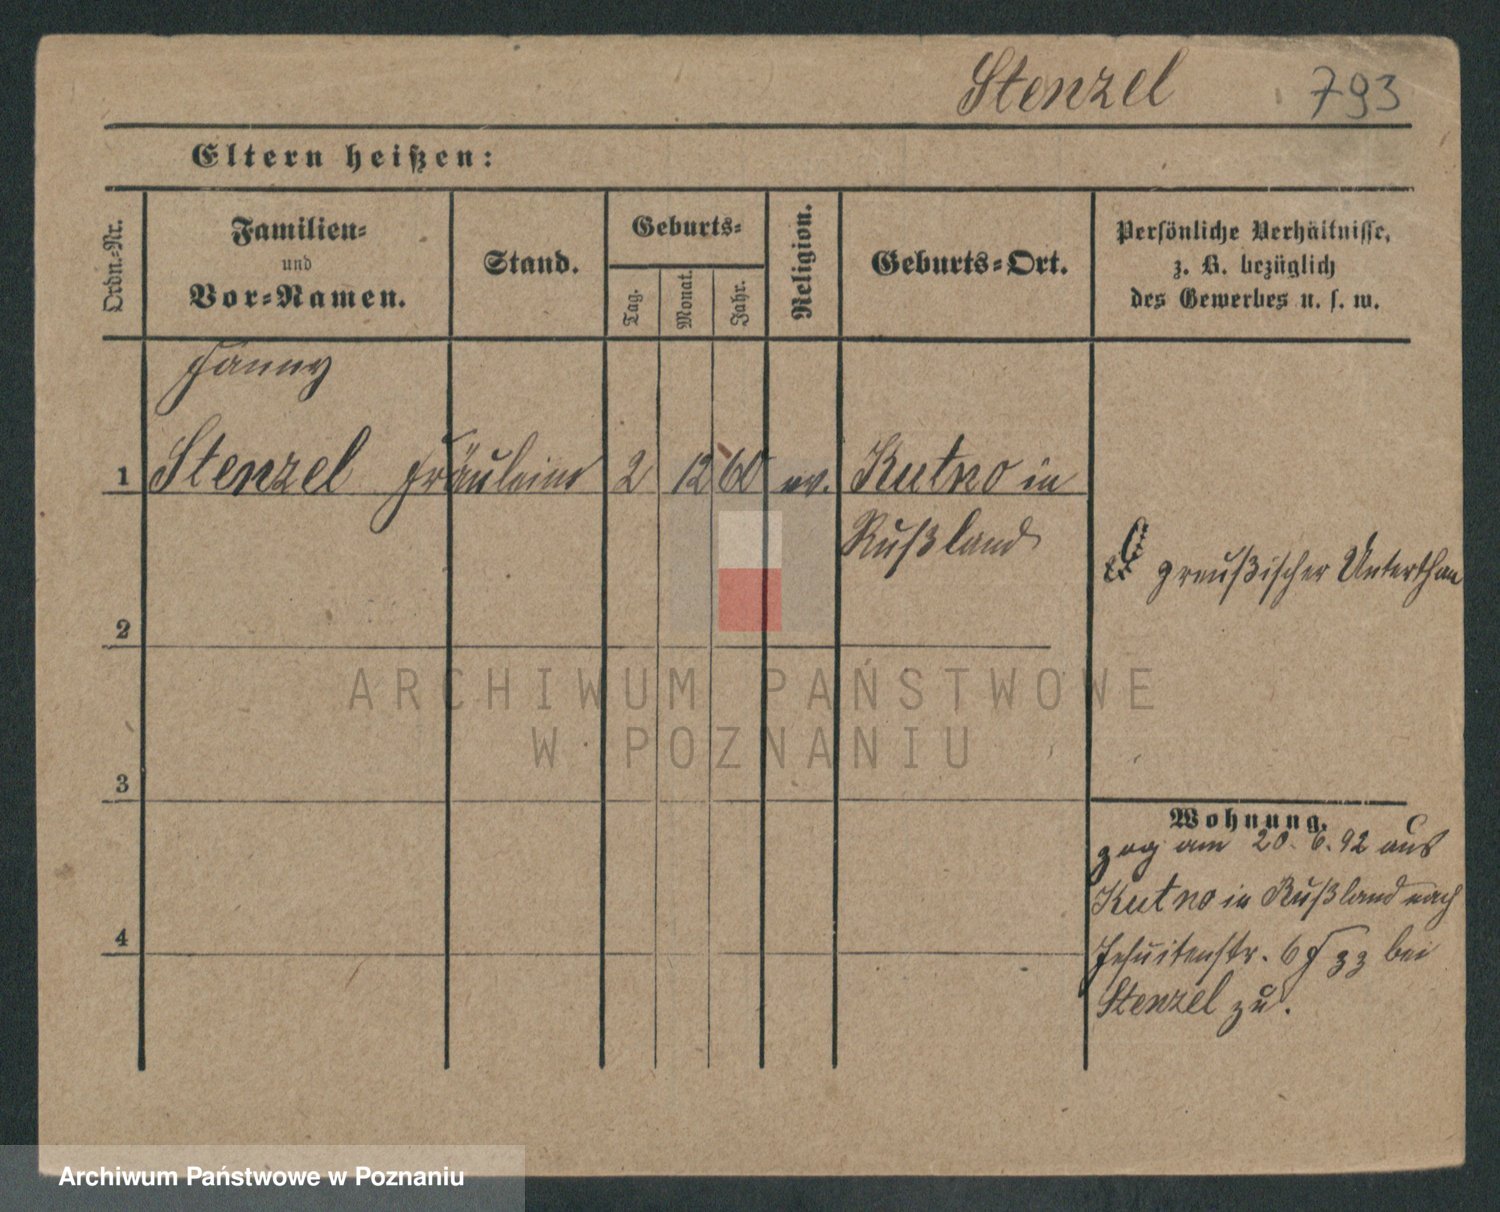 Stenzel 793
Eltern heißen:
Ordn.-Nr.
Familien-
und
Vor-Namen.
Stand.
Geburts-
Tag.
Monat.
Jahr.
Religion.
Geburts-Ort.
Persönliche Verhältnisse,
z. B. bezüglich
des Gewerbes u. s. w.
Fanny
1 Stenzel Fräulein 2 12 60 ev. Kutno in
Rußland
preußischer Unterthan
2
3
4
Wohnung.
zog am 20. 6. 92 aus
Kutno in Rußland nach
Jesuitenstr. 6 bei
Stenzel zu.
ARCHIWUM PAŃSTWOWE
W POZNANIU
Archiwum Państwowe w Poznaniu